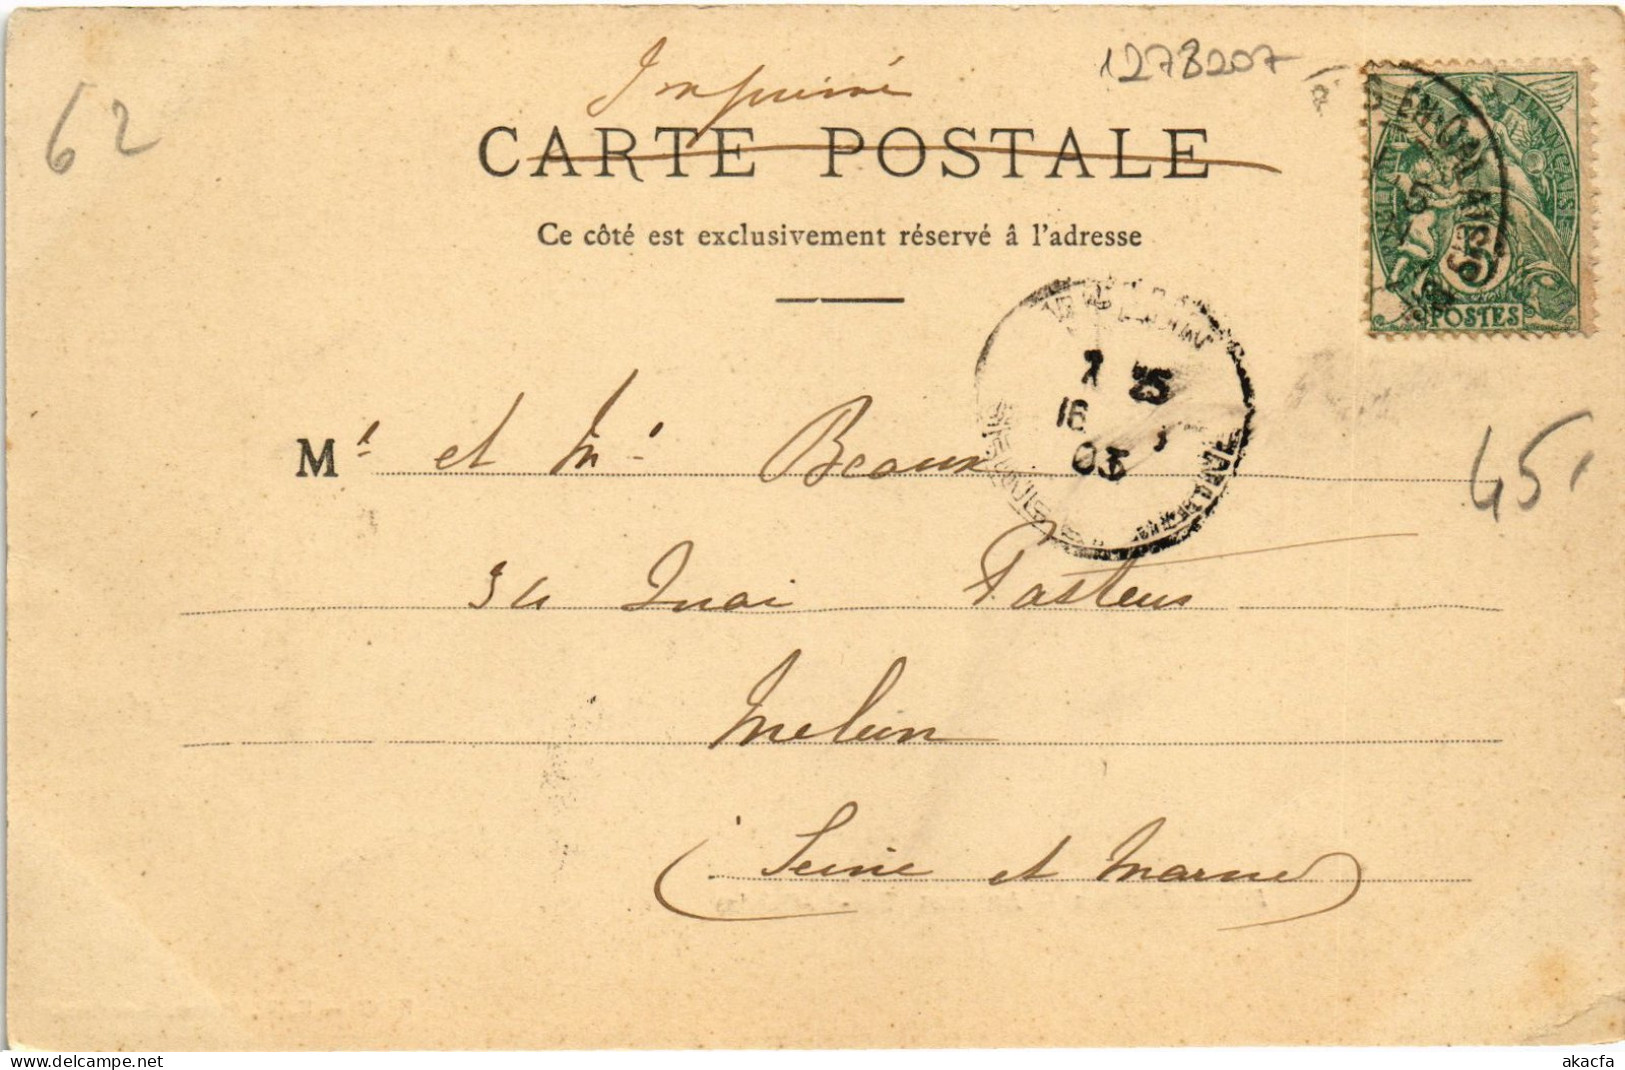 1278207
62
Imprimé
CARTE POSTALE
Ce côté est exclusivement réservé à l'adresse
RÉPUBLIQUE FRANÇAISE
5
POSTES
7 25
16
03
Mr et Mme Beaux
34 Quai Pasteur
45
Melun
(Seine et Marne)
akacfa